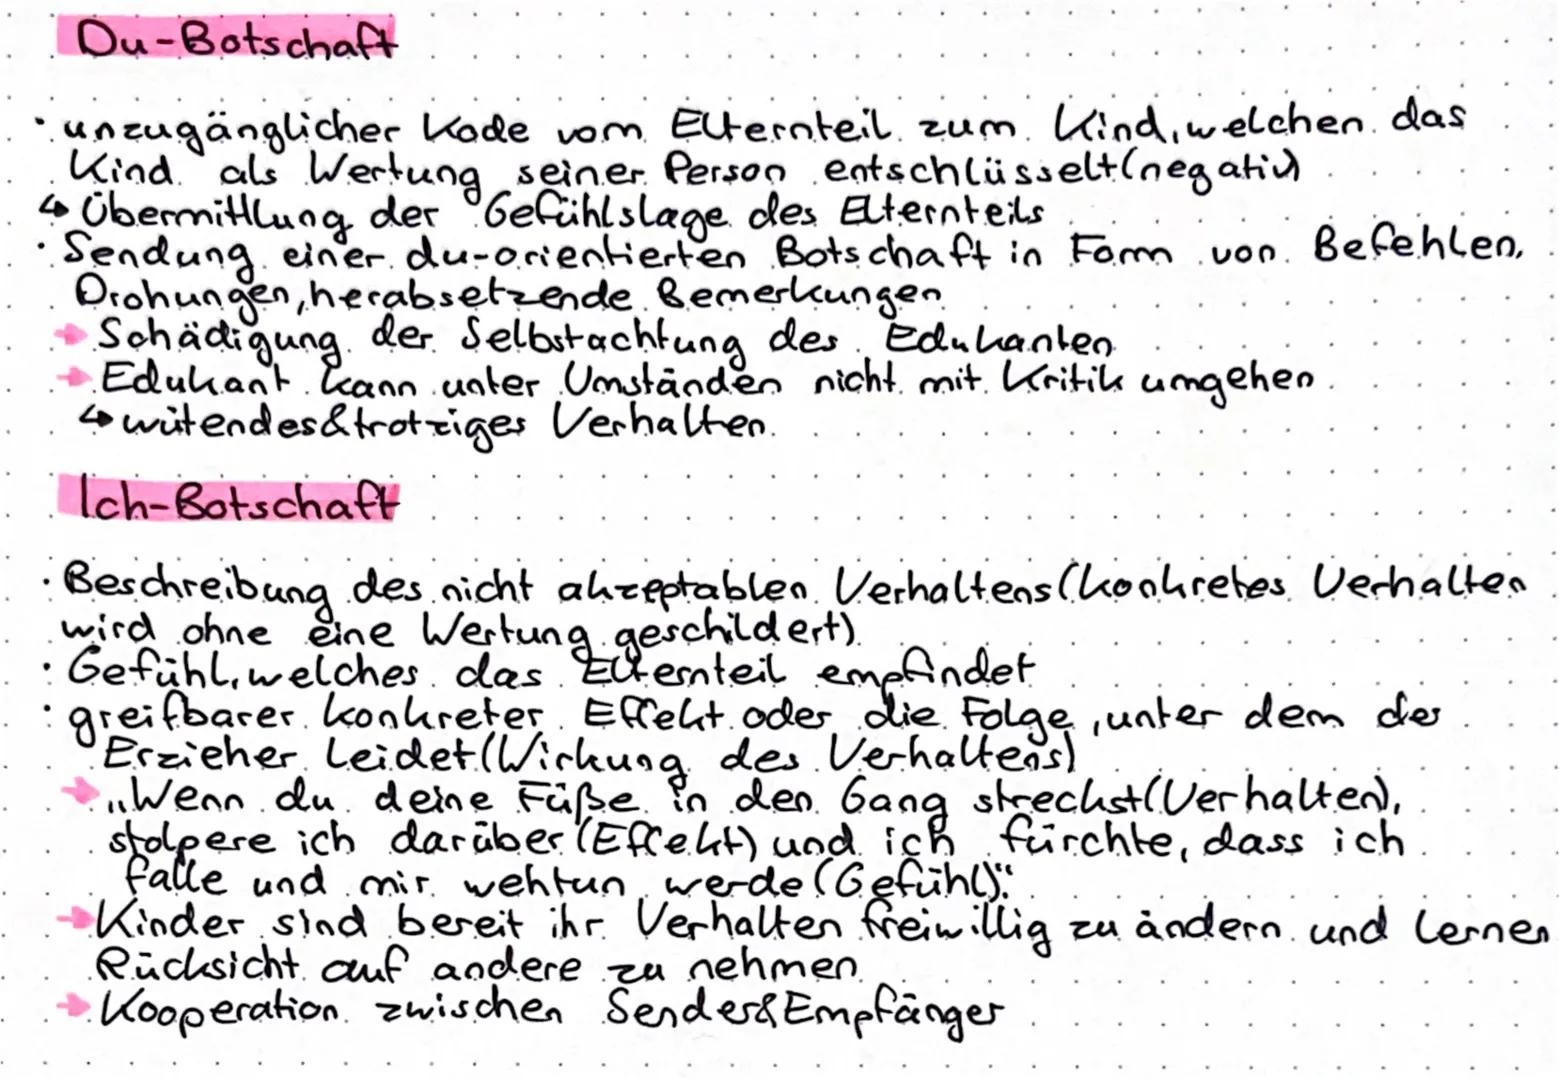 Du-Botschaft
· unzugänglicher Kode vom Elternteil zum Kind, welchen das
Kind als Wertung seiner Person entschlüsselt(negativ)
↳ Übermittlung der Gefühlslage des Elternteils
· Sendung einer du-orientierten Botschaft in Form von Befehlen,
Drohungen, herabsetzende Bemerkungen
→ Schädigung der Selbstachtung des Edukanten
→ Edukant kann unter Umständen nicht mit Kritik umgehen
↳ wütendes&trotziges Verhalten
Ich-Botschaft
· Beschreibung des nicht akzeptablen Verhaltens (konkretes Verhalten
wird ohne eine Wertung geschildert)
· Gefühl, welches das Elternteil empfindet
· greifbarer konkreter Effekt oder die Folge, unter dem der
Erzieher leidet (Wirkung des Verhaltens)
→ „Wenn du deine Füße in den Gang streckst (Verhalten),
stolpere ich darüber (Effekt) und ich fürchte, dass ich
falle und mir wehtun werde (Gefühl)."
→ Kinder sind bereit ihr Verhalten freiwillig zu ändern und lernen
Rücksicht auf andere zu nehmen
→ Kooperation zwischen Sender&Empfänger